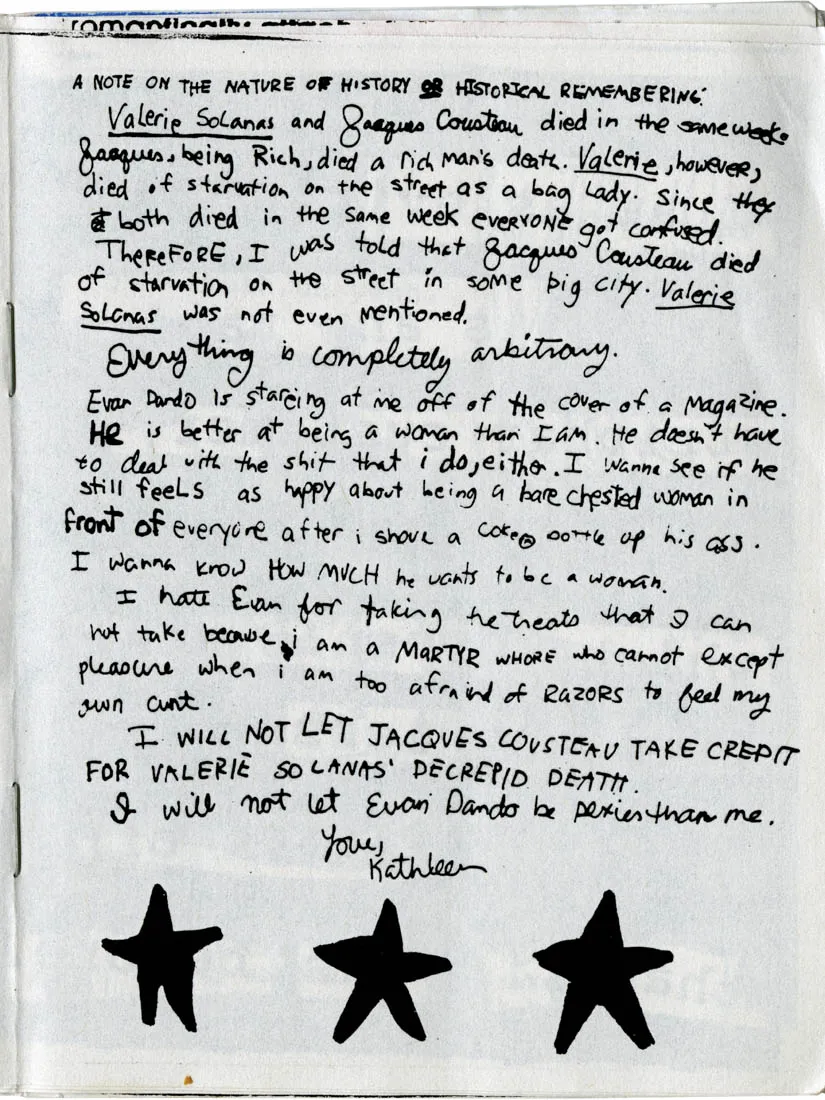 A NOTE ON THE NATURE OF HISTORY OR HISTORICAL REMEMBERING:
Valerie Solanas and Jacques Cousteau died in the same week.
Jacques, being Rich, died a rich man's death. Valerie, however,
died of starvation on the street as a bag lady. Since they
both died in the same week EVERYONE got confused.
THEREFORE, I was told that Jacques Cousteau died
of starvation on the street in some big city. Valerie
Solanas was not even mentioned.
Everything is completely arbitrary.
Evan Dando is stareing at me off of the cover of a magazine.
He is better at being a woman than I am. He doesn't have
to deal with the shit that i do, either. I wanna see if he
still feels as happy about being a bare chested woman in
front of everyone after i shove a coke bottle up his ass.
I wanna know HOW MUCH he wants to be a woman.
I hate Evan for taking the treats that I can
not take because i am a MARTYR WHORE who cannot except
pleasure when i am too afraid of RAZORS to feel my
own cunt.
I WILL NOT LET JACQUES COUSTEAU TAKE CREDIT
FOR VALERIE SOLANAS' DECREPID DEATH.
I will not let Evan Dando be sexier than me.
Kathleen